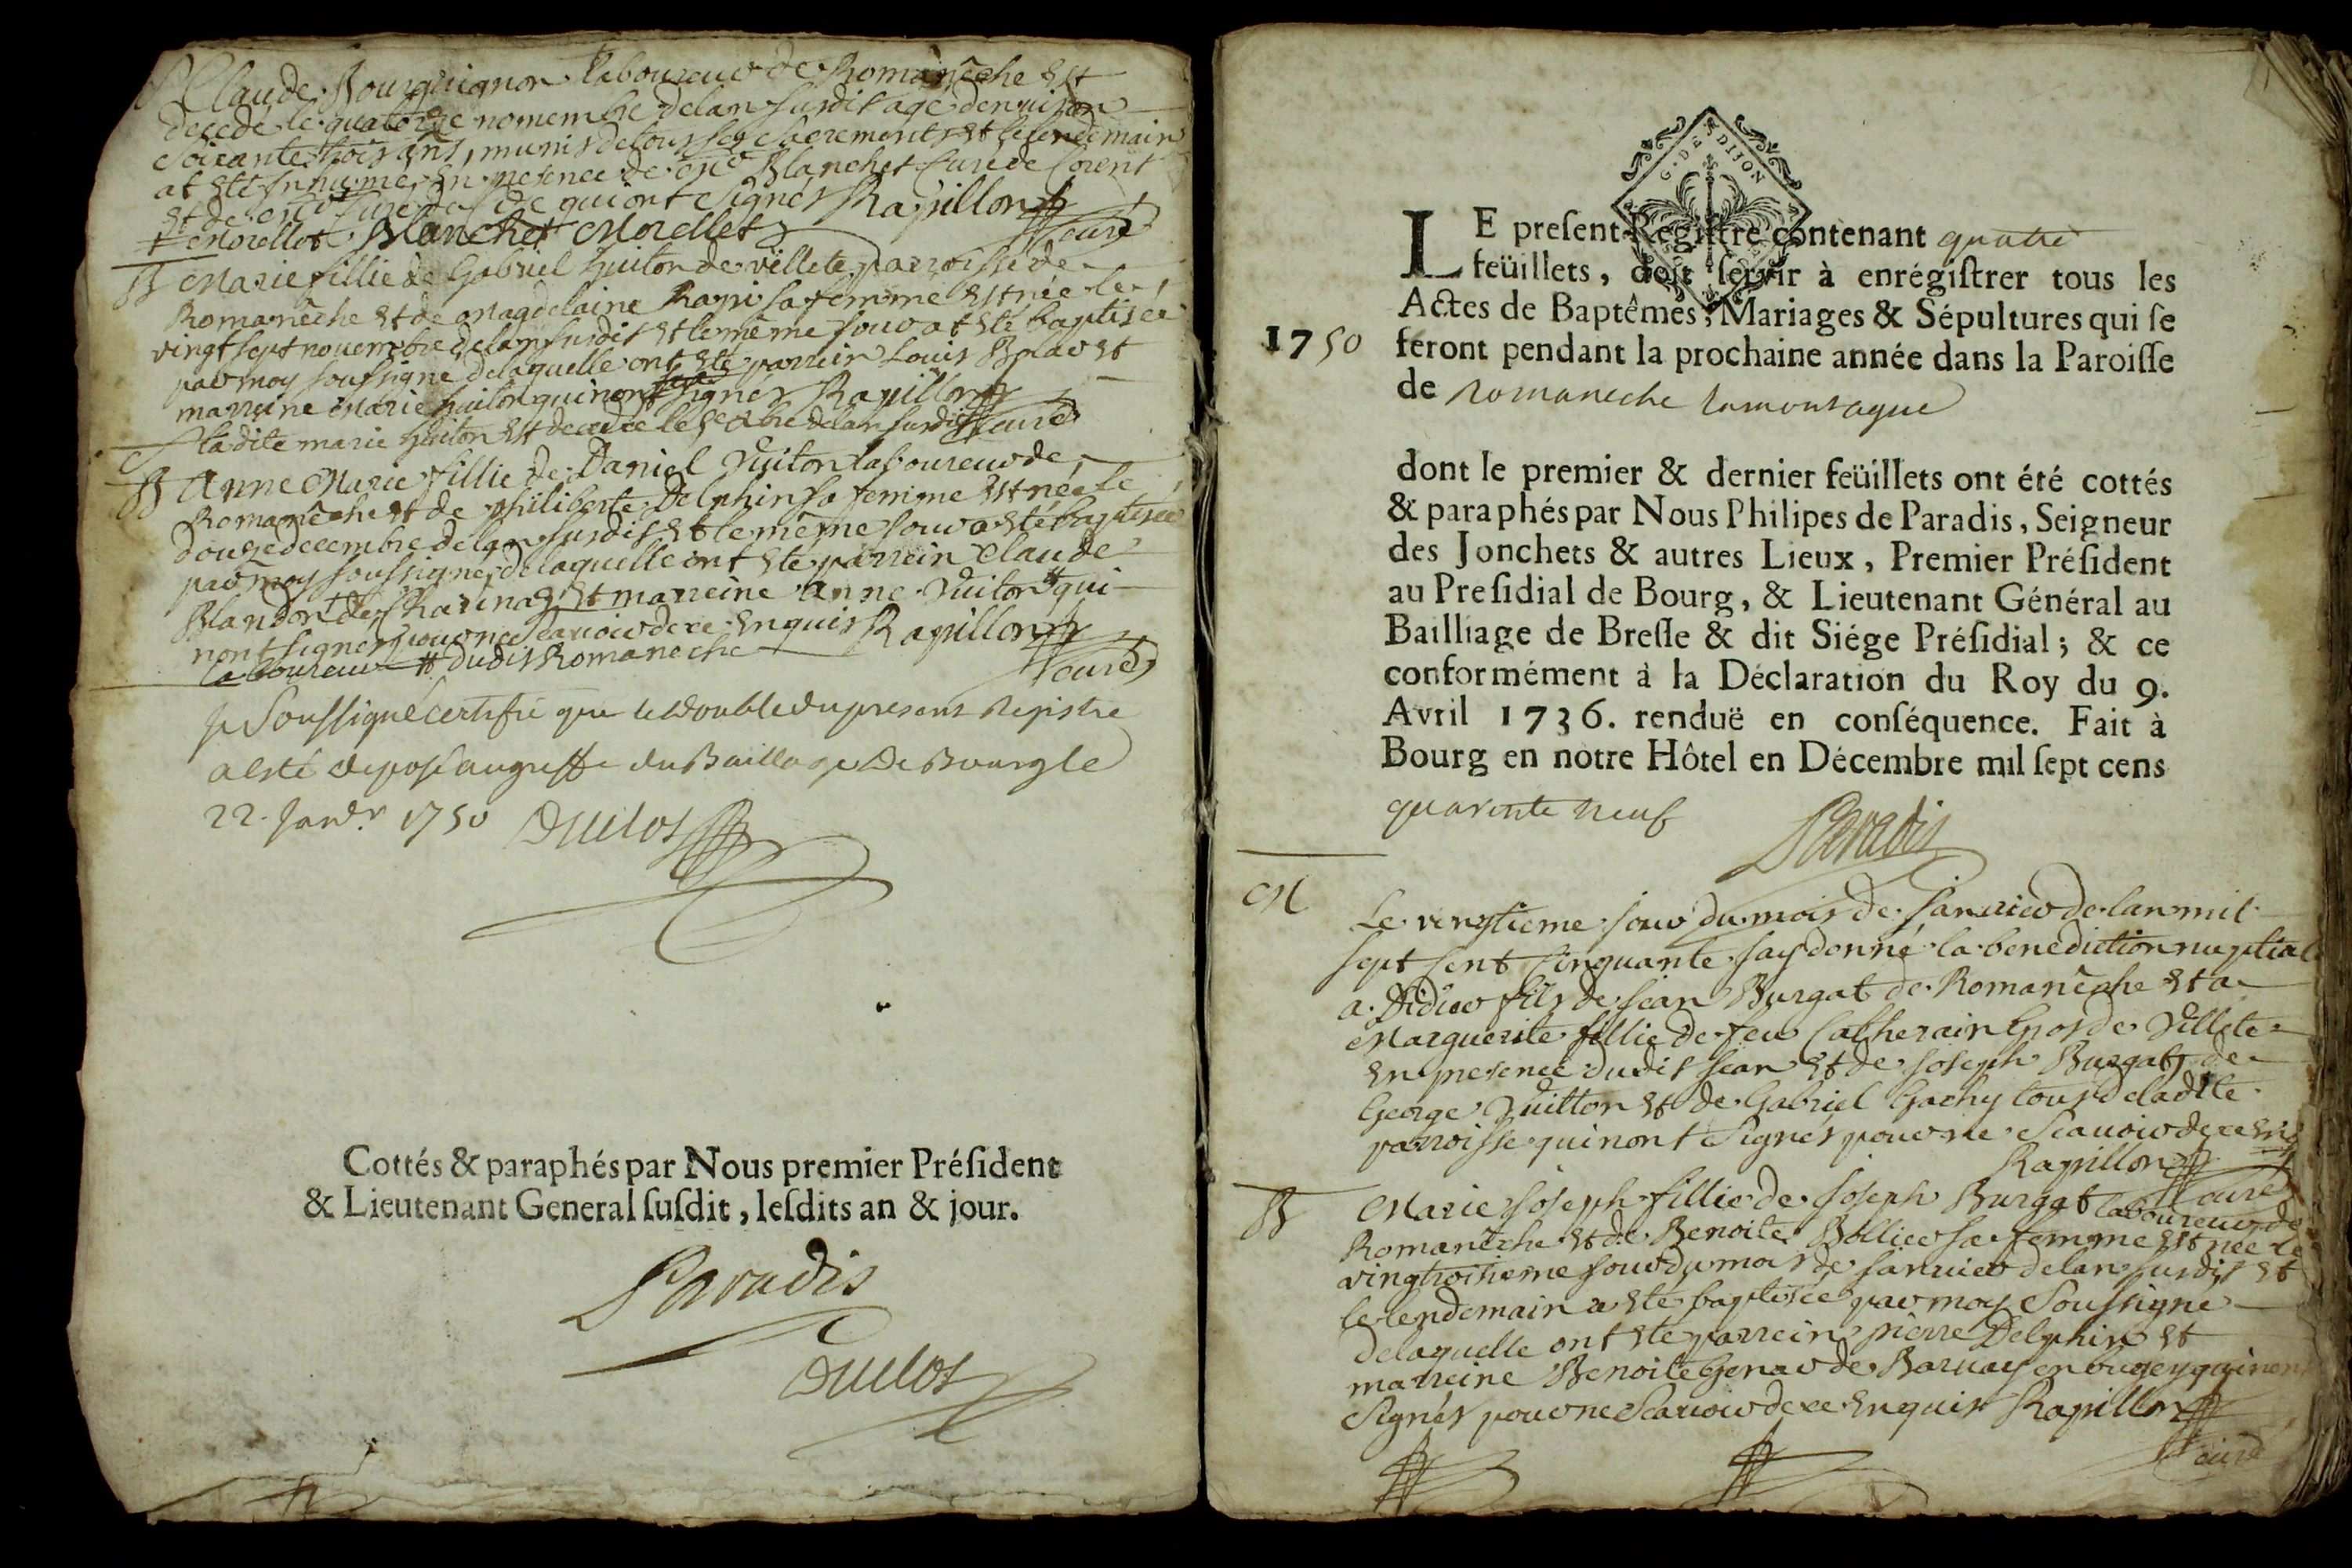 Claude Bourguignon laboureur de Romanêche est
decedé le quatorze novembre delan susdit agé denuiron
soixante trois ans, munis de tous ses sacrements et le lendemain
at esté inhumé en presence de me Blanchet Curé de Corent
et de me curé de qui ont signés Rapillon
+ Morellet Blanchet Morellet curé
B Marie fillie de Gabriel Guiton de villete parroisse de
Romanêche et de Magdelaine Rapi sa femme est née le
vingt sept nouembre delan susdit et le même jour at esté baptisée
par moy soussigné delaquelle ont esté parrein Louis Bolar et
marreine Marie Guiton qui nont signés Rapillon
ladite marie Guiton est decedee le Xbre delan susdit curé
B Anne Marie fillie de Daniel Vuiton laboureur de
Romanêche et de philiberte Delphin sa femme est née le
douze decembre delan susdit et le même jour a esté baptisée
par moy soussigné, delaquelle ont esté parrein Claude
Blandon + de Charinas et marreine Anne Vuiton # qui
nont signés pour ne scavoir de ce enquis Rapillon
laboureur # dudit Romaneche curé
Je Soussigné certifie que le double du present Registre
a esté deposé au greffe du Baillage De Bourg le
22. Janvr 1750 Duclos
Cottés & paraphés par Nous premier Préſident
& Lieutenant General ſuſdit, leſdits an & jour.
Paradis
Duclos
G. DE DIJON
LE preſent Regiſtre contenant quatre
feüillets, doit ſervir à enrégiſtrer tous les
Actes de Baptêmes, Mariages & Sépultures qui ſe
1750 feront pendant la prochaine année dans la Paroiſſe
de Romaneche lamontagne
dont le premier & dernier feüillets ont été cottés
& paraphés par Nous Philipes de Paradis, Seigneur
des Jonchets & autres Lieux, Premier Préſident
au Preſidial de Bourg, & Lieutenant Général au
Bailliage de Breſſe & dit Siége Préſidial ; & ce
conformément à la Déclaration du Roy du 9.
Avril 1736. renduë en conſéquence. Fait à
Bourg en notre Hôtel en Décembre mil ſept cens
quarente neuf Paradis
M Le vingtieme jour du mois de januier de lan mil
sept cent cinquante jay donné la benediction nuptiale
a Didier fils de jean Burgat de Romanêche et a
Marguerite fillie de feu Catherain Gros de Villete
en presence dudit jean et de joseph Burgat, de
George Vuitton et de Gabriel Gachy tous de ladite
parroisse qui nont signés pour ne scauoir de ce enq
Rapillon
curé
B Marie joseph fillie de joseph Burgat laboureur de
Romanêche et de Benoite Bollier sa femme est née le
vingtroisieme jour du mois de januier delan susdit et
le lendemain a esté baptisée par moy soussigné
delaquelle ont esté parrein pierre Delphin et
marreine Benoite Genar de Baruay en bugey qui nont
signés pour ne scauoir de ce enquis Rapillon
curé